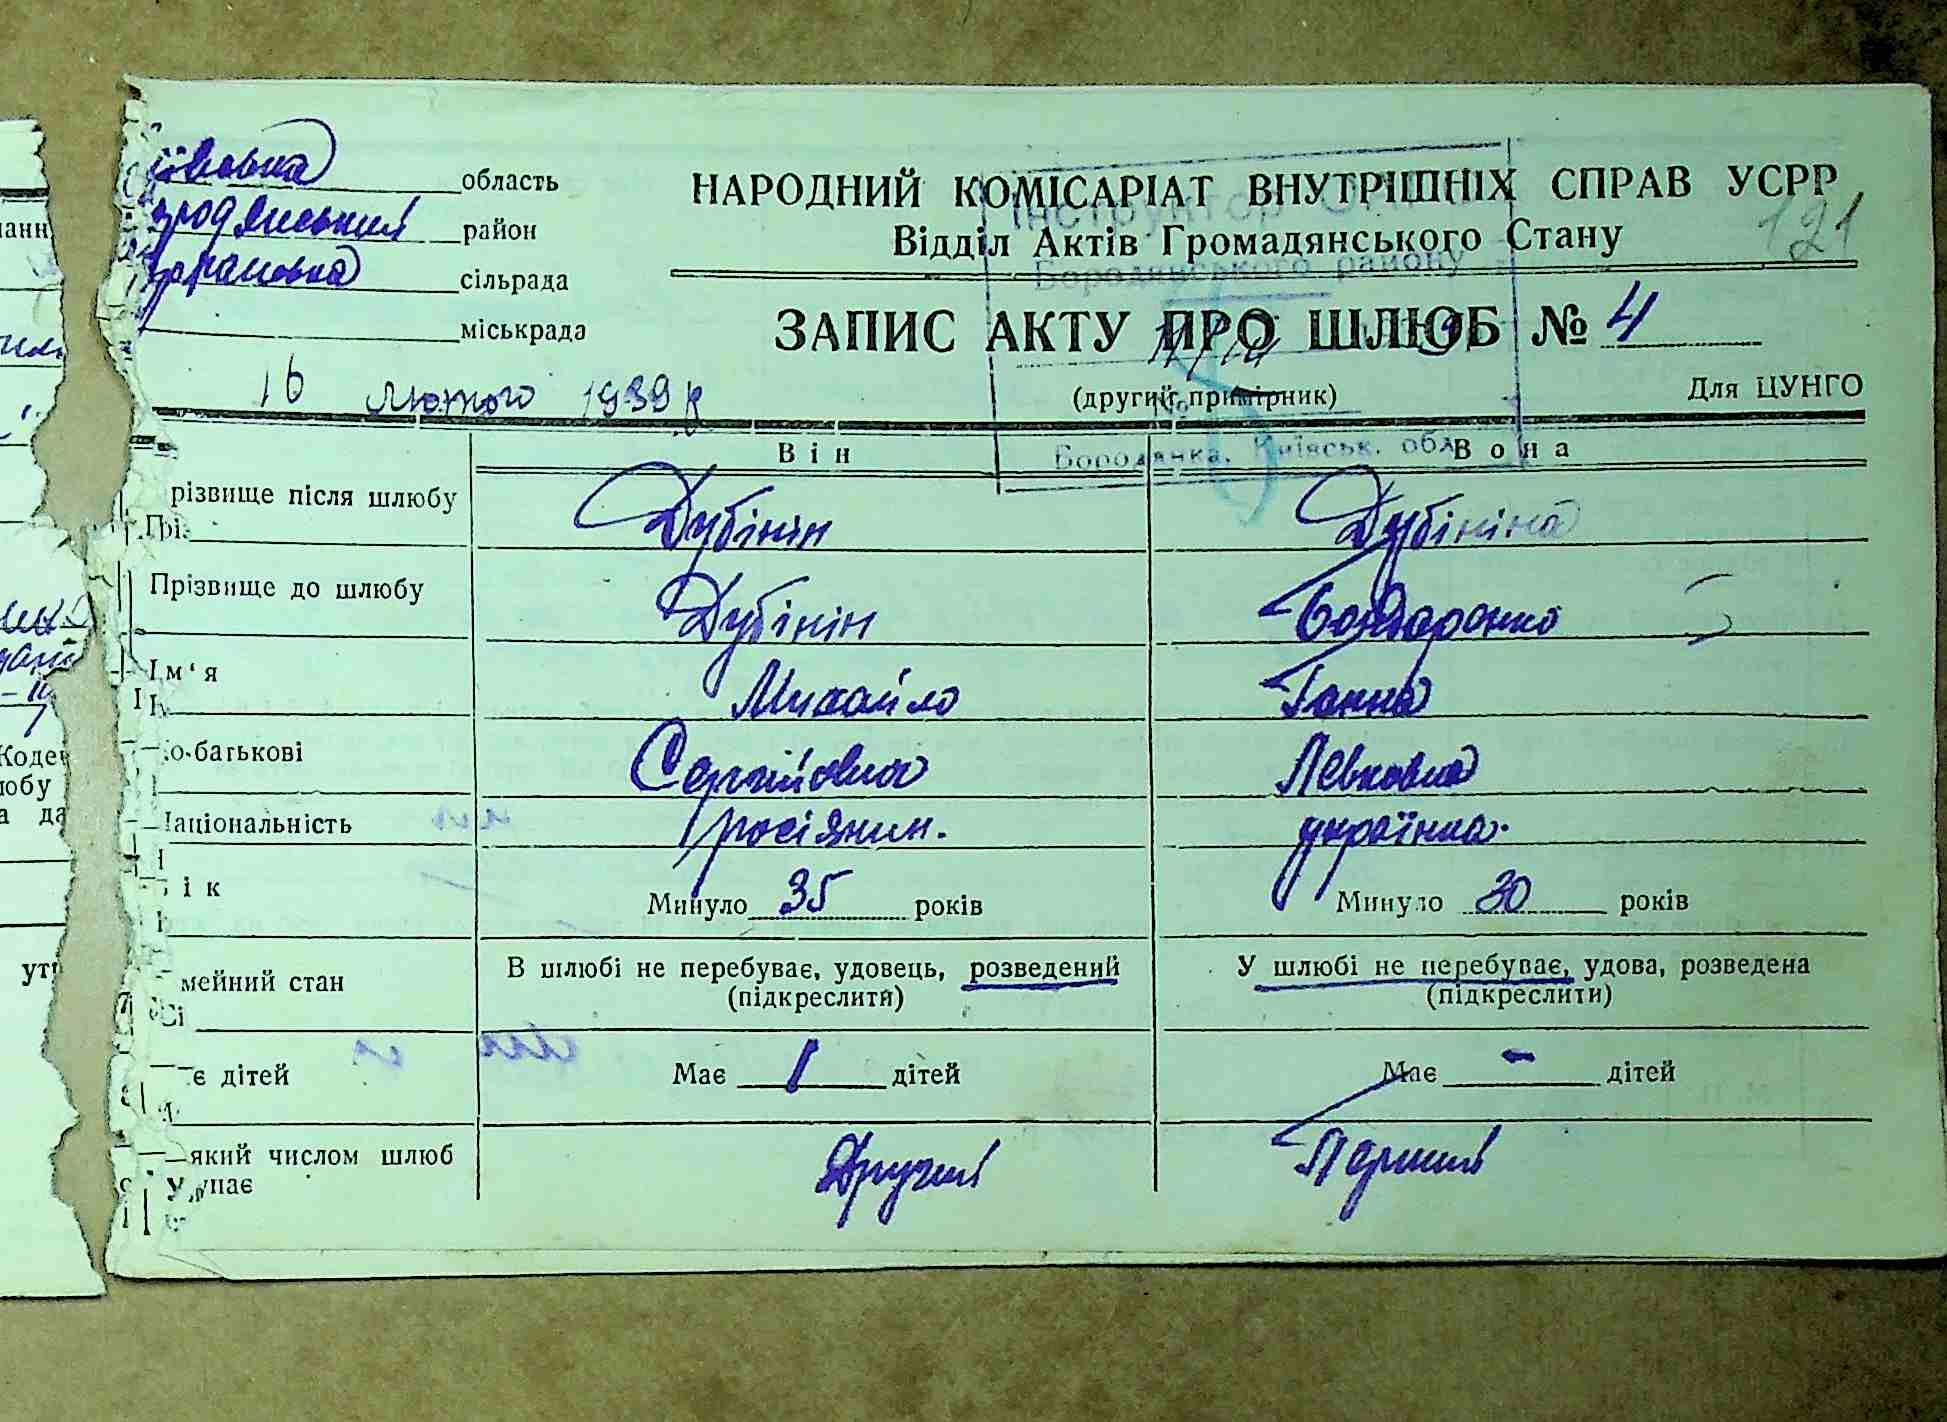 область
НАРОДНИЙ КОМІСАРІАТ ВНУТРІШНІХ СПРАВ УСРР
родянський район
Відділ Актів Громадянського Стану
121
сільрада
Бородянського району
міськрада
ЗАПИС АКТУ ПРО ШЛЮБ № 4
16 лютого 1939 р
(другий примірник)
Для ЦУНГО
Він
Вона
Бородянка, Київськ. обл.
різвище після шлюбу
Дубінін
Дубініна
Прізвище до шлюбу
Дубінін
Бондаренко
Ім'я
Михайло
Ганна
о-батькові
Сергійович
Левковна
аціональність
росіянин.
українка.
ік
Минуло 35 років
Минуло 20 років
мейний стан
В шлюбі не перебуває, удовець, розведений
(підкреслити)
У шлюбі не перебуває, удова, розведена
(підкреслити)
є дітей
Має 1 дітей
Має - дітей
який числом шлюб
Другий
Перший